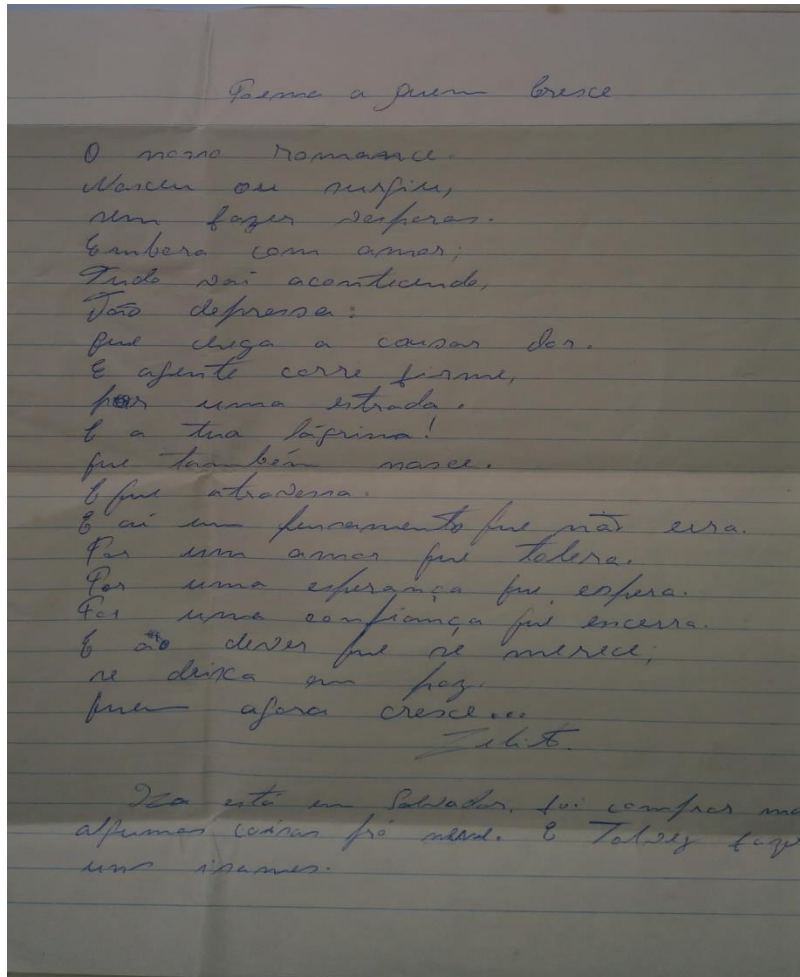 Poema a quem Cresce
O nosso romance.
Nasceu ou surgiu,
sem fazer vesperas.
Embora com amor;
Tudo vai acontecendo,
Tão depressa:
que chega a causar dor.
E agente corre firme,
por uma estrada.
E a tua lágrima!
que também nasce.
E que atravessa.
E ai um pensamento que não erra.
Por um amor que tolera.
Por uma esperança que espera.
Por uma confiança que encerra.
E ao dever que se merece;
se deixa em paz.
quem agora cresce...
Zelito.
Iza está em Salvador, foi comprar ma
algumas coisas pró nenê. E Talvez faze
uns isames.